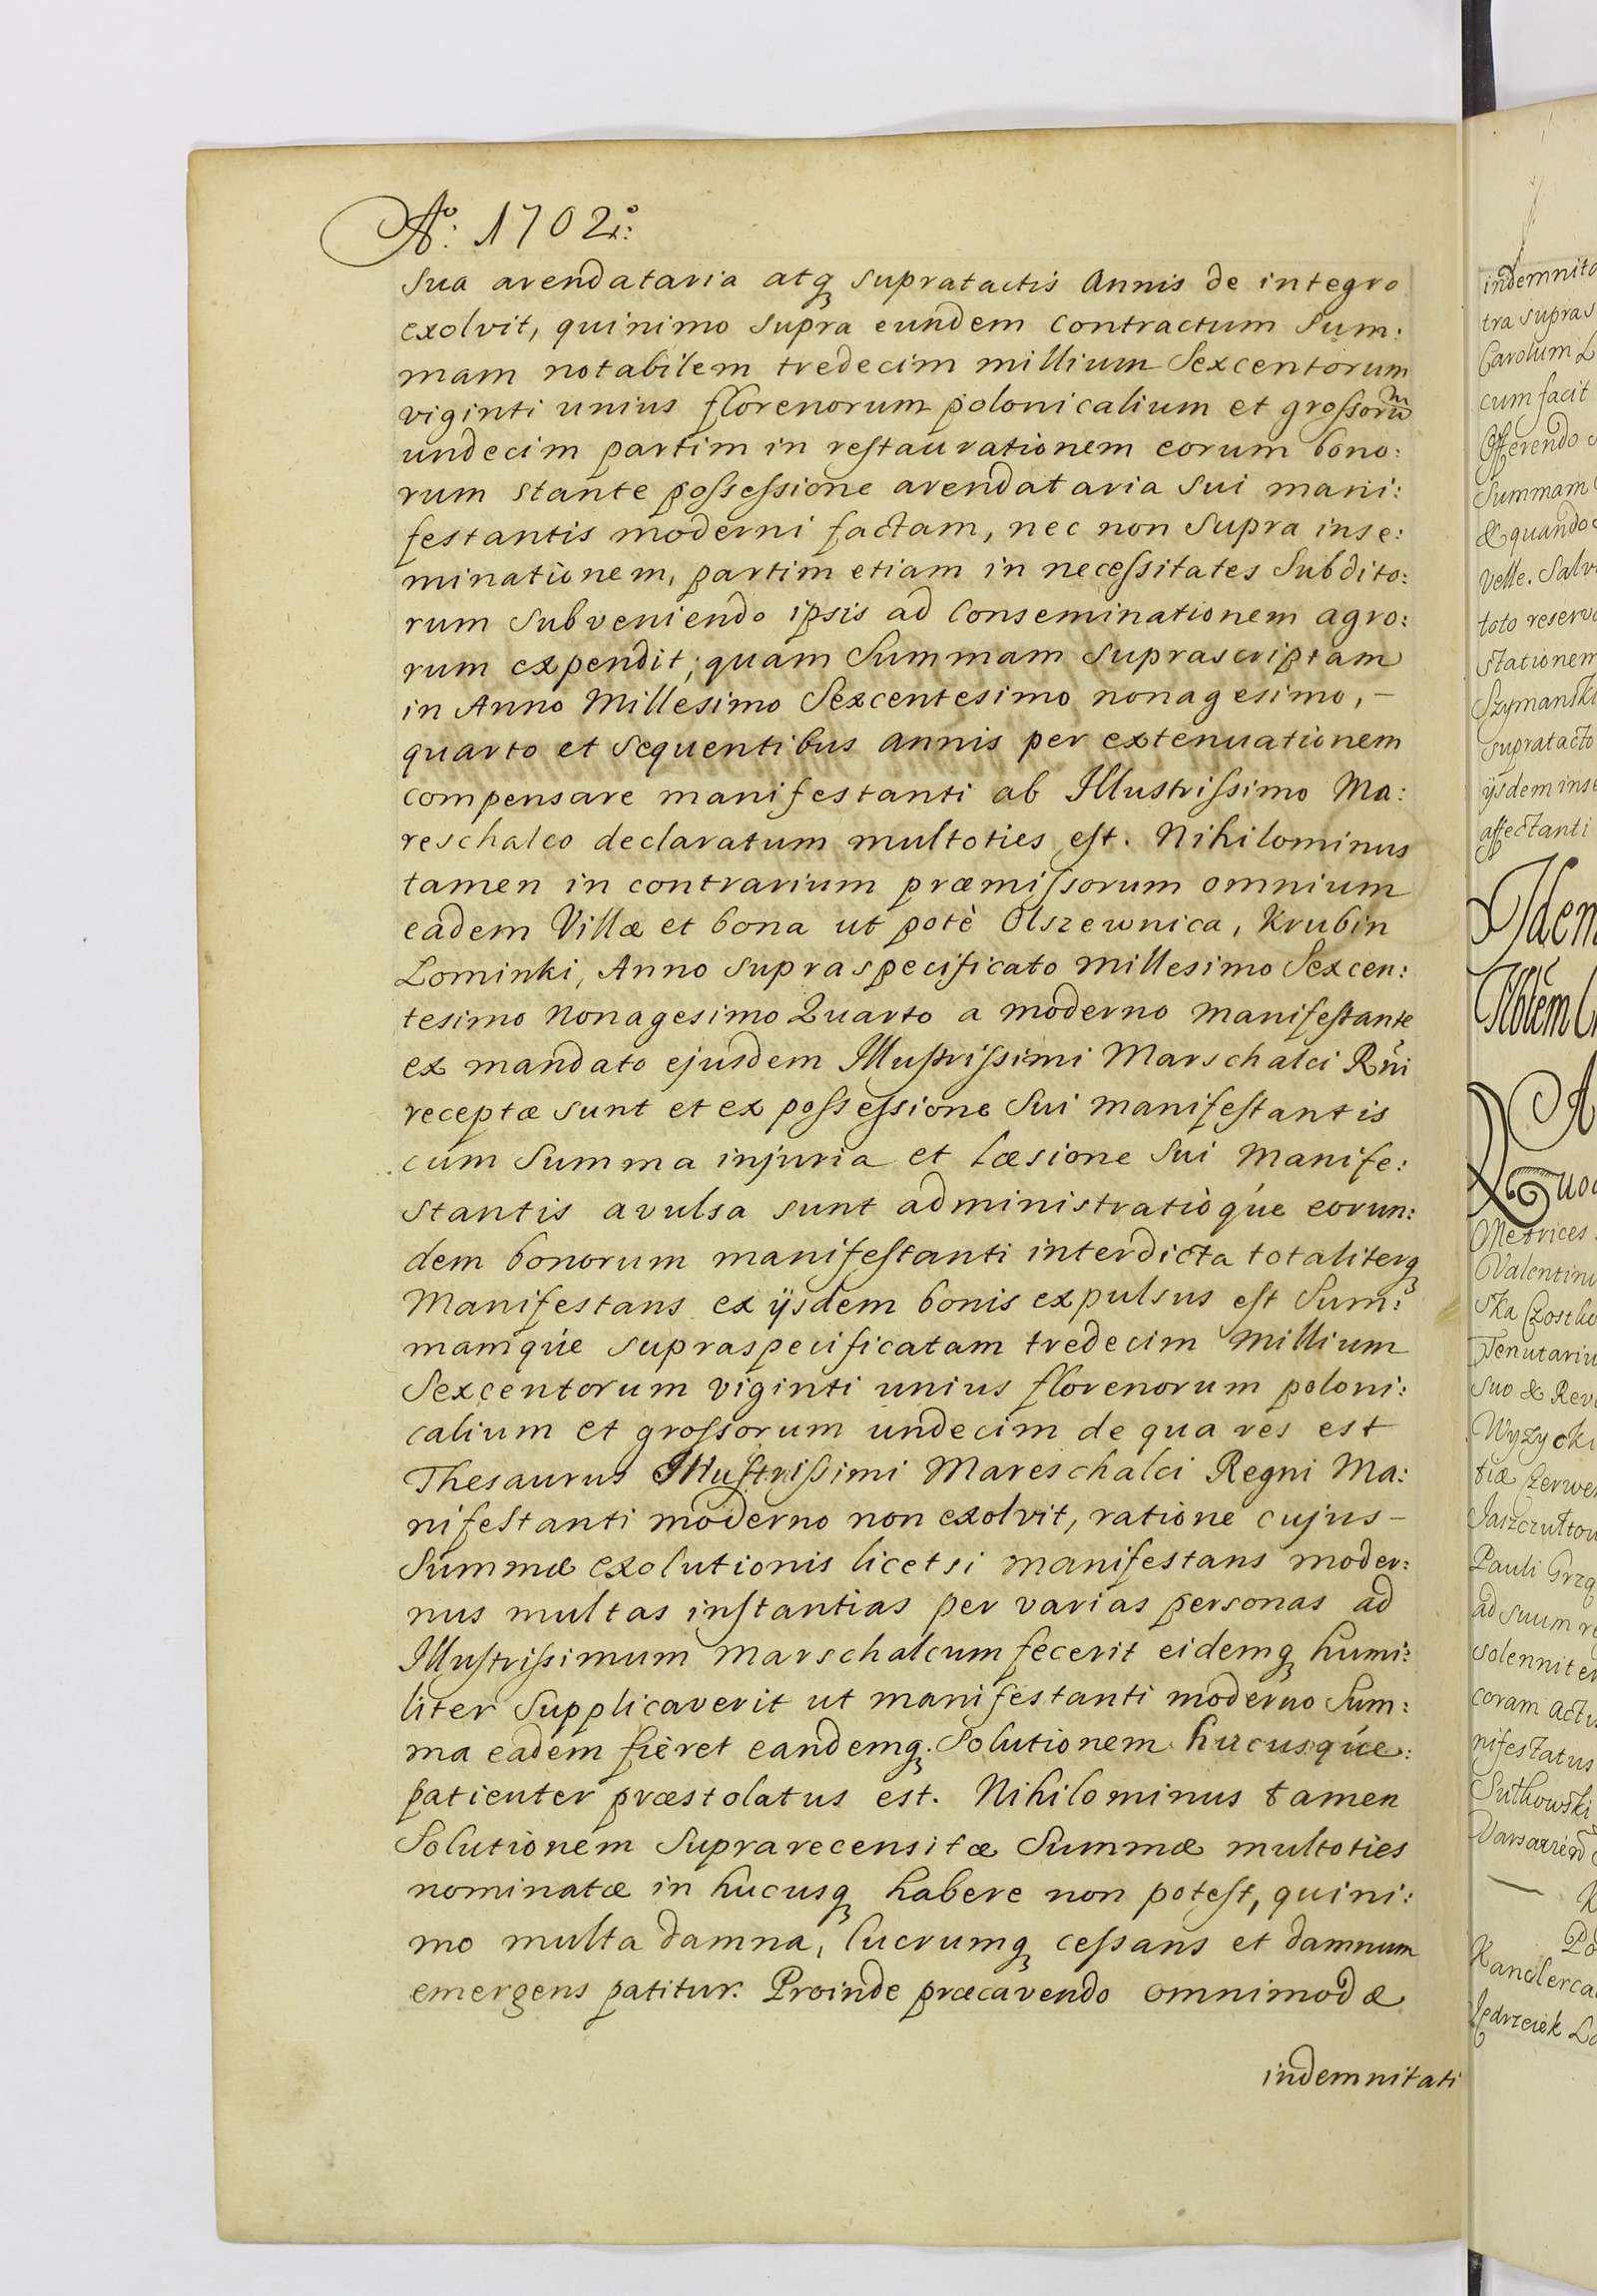 Aº: 1702º:
sua arendataria atq supratactis Annis de integro
exolvit, quinimo supra eundem contractum Sum:
mam notabilem tredecim millium Sexcentorum
viginti unius florenorum polonicalium et grossorum
undecim partim in restaurationem eorum bono:
rum stante possessione arendataria sui mani:
festantis moderni factam, nec non supra inse:
minationem, partim etiam in necessitates Subdito:
rum Subveniendo ipsis ad Conseminationem agro:
rum expendit, quam Summam suprascriptam
in Anno Millesimo Sexcentesimo nonagesimo, –
quarto et sequentibus annis per extenuationem
compensare manifestanti ab Illustrissimo Ma:
reschalco declaratum multoties est. Nihilominus
tamen in contrarium præmissorum omnium
eadem Villæ et bona ut potè Olszewnica, Krubin
Lominki, Anno supraspecificato millesimo Sexcen:
tesimo Nonagesimo Quarto a moderno manifestante
ex mandato ejusdem Illustrissimi Marschalci Rni
receptæ sunt et ex possessione Sui manifestantis
cum Summa injuria et læsione Sui Manife:
stantis avulsa sunt administratioque eorun:
dem bonorum manifestanti interdicta totaliterq
Manifestans ex ijsdem bonis expulsus est Sum:
mamque supraspecificatam tredecim Millium
Sexcentorum viginti unius florenorum poloni:
calium et grossorum undecim de qua res est
Thesaurus Illustrissimi Mareschalci Regni Ma:
nifestanti moderno non exolvit, ratione cujus –
Summæ exolutionis licetsi manifestans moder:
nus multas instantias per varias personas ad
Illustrissimum Marschalcum fecerit eidemq humi:
liter Supplicaverit ut manifestanti moderno Sum:
ma eadem fieret eandemq. Solutionem hucusque:
patienter præstolatus est. Nihilominus tamen
Solutionem Suprarecensitæ Summæ multoties
nominatæ in hucusq habere non potest, quini:
mo multa damna, lucrumq cessans et damnum
emergens patitur. Proinde præcavendo omnimodæ
indemnitati
indemnita
tra supras
Carolum L
cum facit
Offerendo
Summam
& quando
Velle. Salv
toto reserv
stationem
Szymanski
supratacto
ijsdem inse
affectanti
Idem
A
Quo
Metrices
Valentin
ska Czosth
Tenutariu
suo & Rev
Wyzycki
tiæ Czerwe
Jaszczultow
Pauli Grzą
ad suum re
solenniter
coram actis
nifestatus
Suthowski
K
Po
Kanclerca
Jędrzeiek Lo